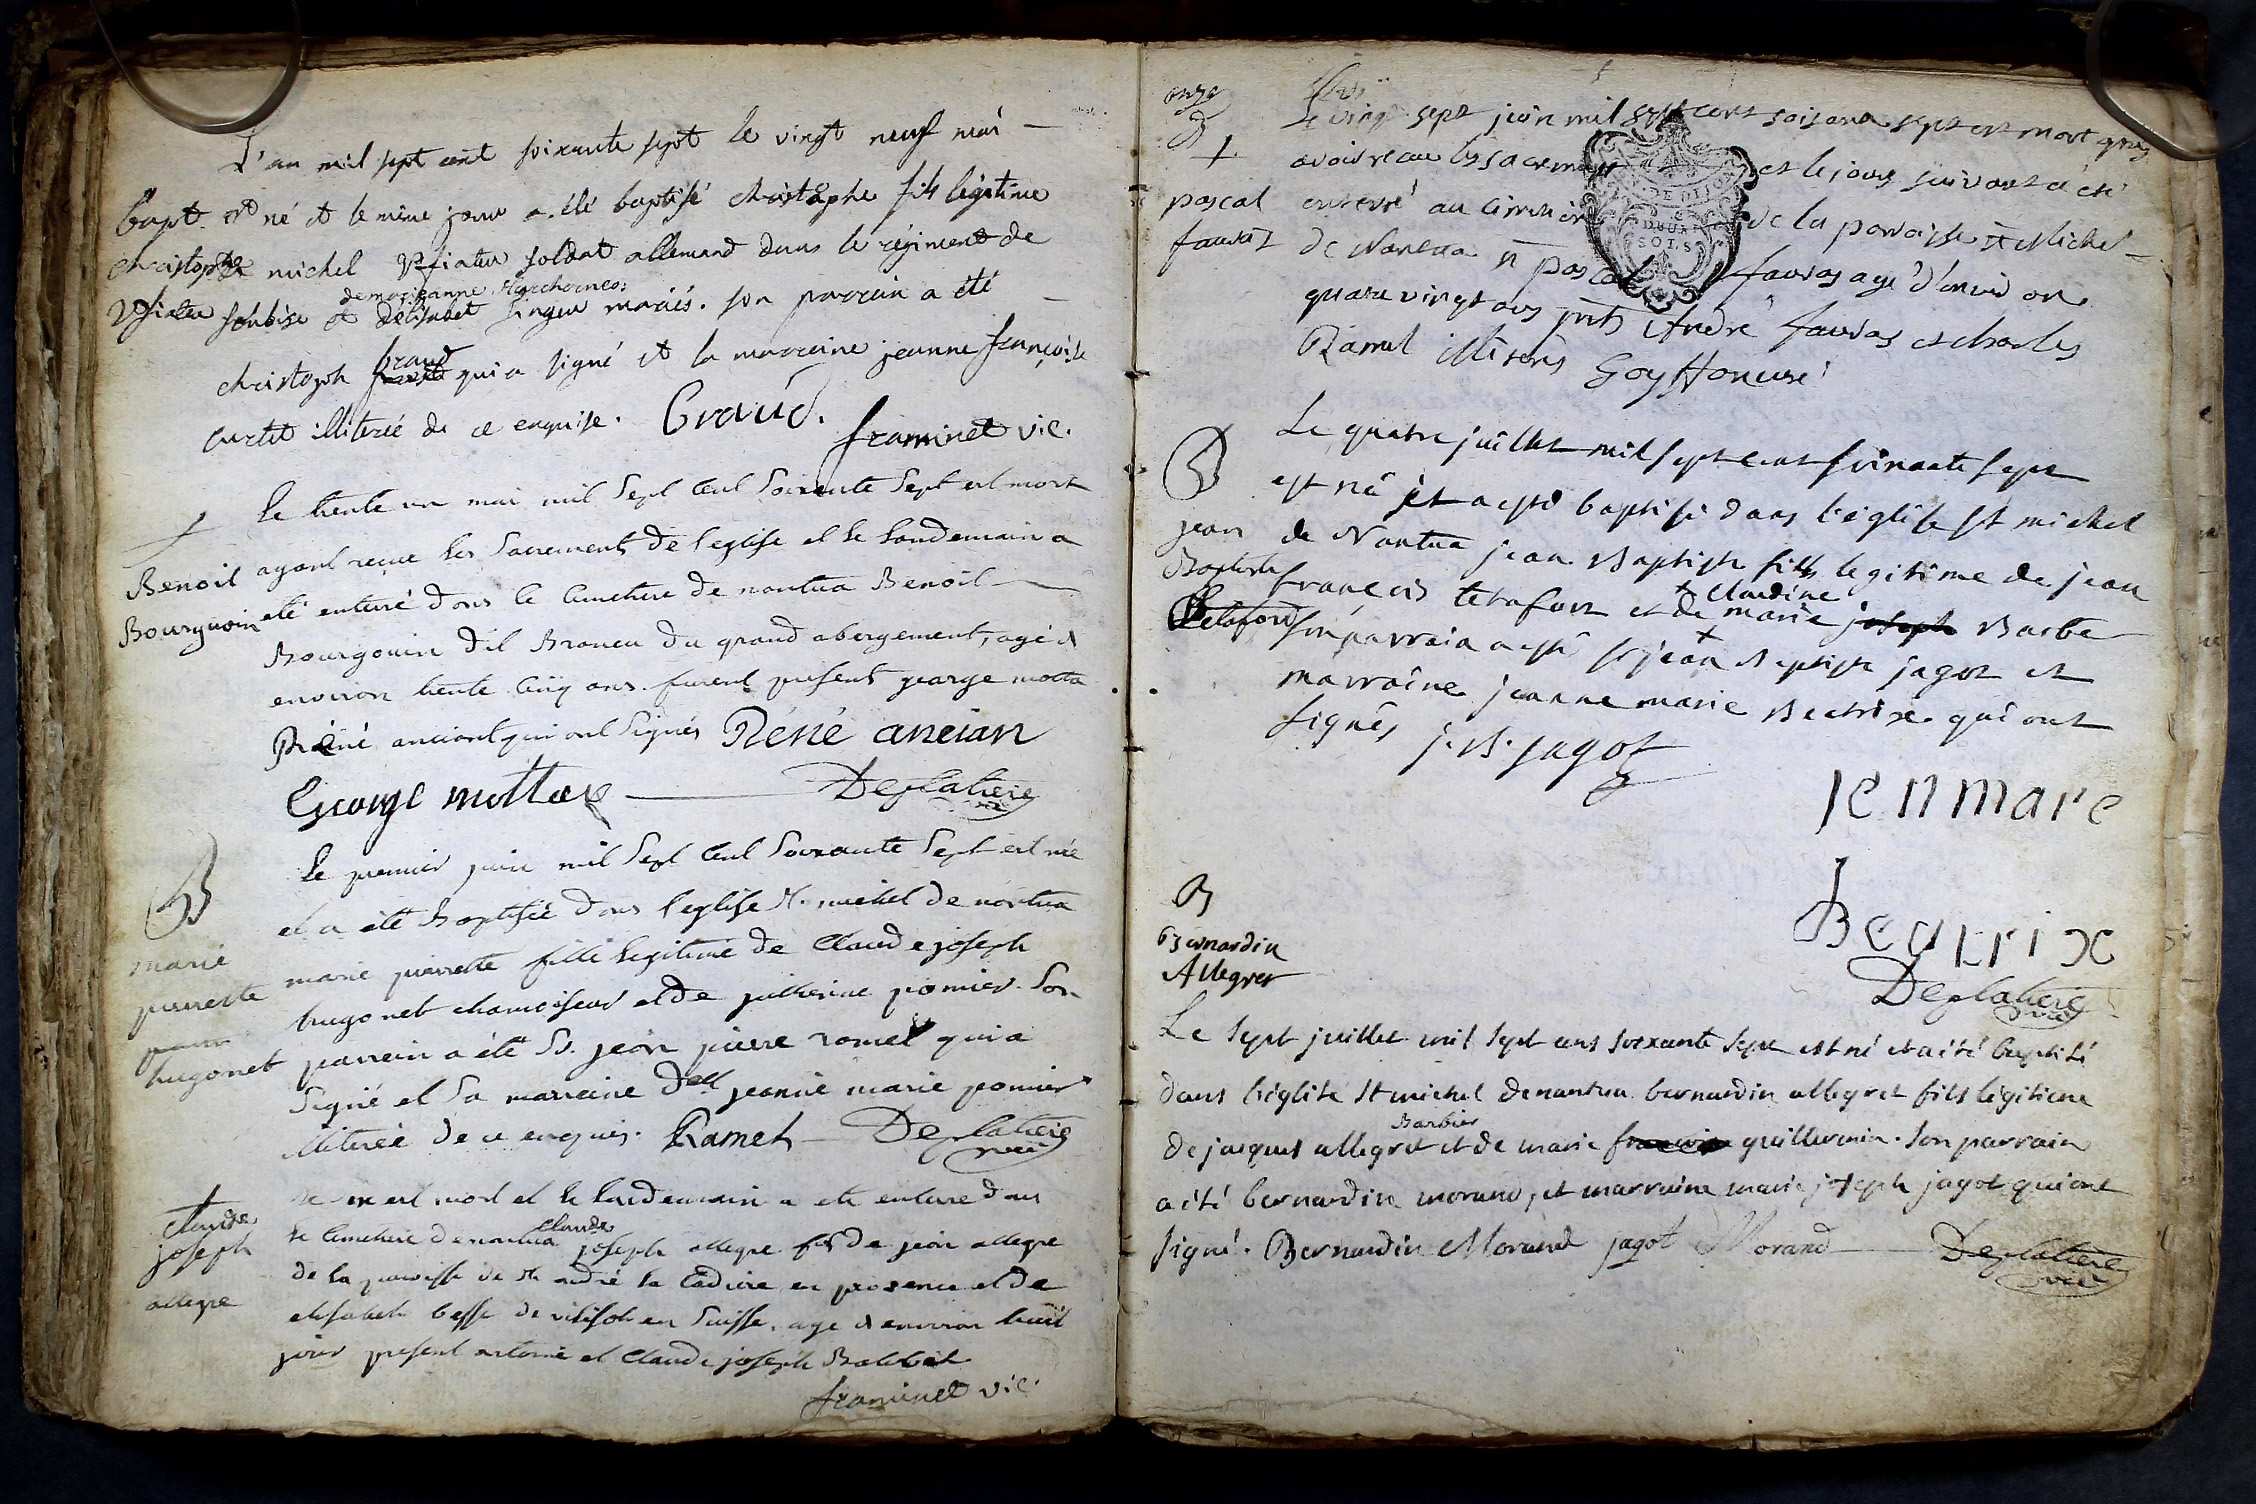 L'an mil sept cent soixante sept le vingt neuf mai
bapt. est né et le même jour a été baptisé christophe fils légitime
christophe michel soldat allemand dans le régiment de
de marianne
soubise et d'elisabet singer mariés. son parrain a été
christoph braud qui a signé et la marraine jeanne françoise
curtet illiterée de ce enquise. Graud.
framinet vic.
†
Le trente un mai mil Sept Cent Soixante Sept est mort
Benoit ayant reçue les Sacrements de l'eglise et le Landemain a
Bourguoin eté enterré dans le Cimetiere de nantua Benoit
Bourgouin dit Braneu du grand abergement, agé d
environ trente Cinq ans. furent présent george motta
Réné anciant qui ont Signés Réné ancian
George mottas Deplatiere
vic
B
Le premier juin mil Sept Cent Soixante Sept est née
et a été Baptisée dans l'eglise st. michel de nantua
marie
pierrette
hugonet
marie pierrette fille legitime de Claude joseph
hugonet chamoiseur et de pomier. Son
parrein a été Sr. jean pierre ramel qui a
Signé et Sa marreine Dell jeanne marie pomier
illiterée de ce enquis. Ramel Deplatiere
vic
†
Claude
joseph
allegre
est mort et le Landemain a eté enterré dans
le Cimetiere de nantua Claude joseph allegre fils de jean allegre
de la paroisse de st. andré la Cadiere en provence et de
elisabeth besse de en Suisse, agé d environ huit
jours présent antoine et Claude joseph
framinet vic.
onze
†
pascal
fauvas
Le vingt sept juin mil sept cent soisante sept est mort après
avoir recue les sacrements et le jour suivant a été
enterré au cimitiere de la paroisse st Michel
de Nantua pascal fauvas agé d'environ
quatre vingt ans pnts André fauvas et charles
Ramel illiterés Goy Honuré
DEUX
SOLS
Le quatre juillet mil sept cent soixante sept
B
jean
Baptiste
Tetafort
est né et a esté baptisé dans l'église st michel
de Nantua jean Baptiste fils legitime de jean
françois tetafort et de marie claudine joseph Barbe
son parrain a esté sr jean Baptiste jagot et
marraine jeanne marie Beatrixe qui ont
signés j. B. jagot
jenmare
Beatrix
Deplatiere
vic
B
Bernardin
Allegret
Le sept juillet mil sept cent soixante sept est né et a été baptisé
dans l'église st michel de nantua bernardin allegret fils légitime
Barbier
de jacques allegret et de marie guillermin. son parrain
a été bernardin morand, et marraine marie joseph jagot qui ont
signé. Bernardin Morand jagot Morand Deplatiere
vic